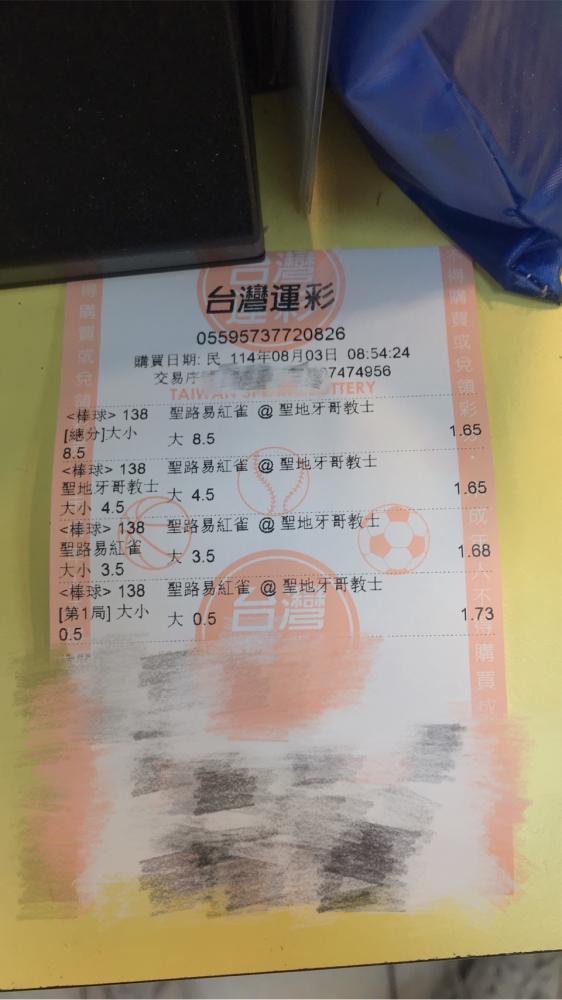 台灣運彩
05595737720826
購買日期: 民 114年08月03日 08:54:24
交易序 7474956
TAIWAN SPORTS LOTTERY
<棒球> 138 聖路易紅雀 @ 聖地牙哥教士
[總分]大小 大 8.5 1.65
8.5
<棒球> 138 聖路易紅雀 @ 聖地牙哥教士
聖地牙哥教士 大 4.5 1.65
大小 4.5
<棒球> 138 聖路易紅雀 @ 聖地牙哥教士
聖路易紅雀 大 3.5 1.68
大小 3.5
<棒球> 138 聖路易紅雀 @ 聖地牙哥教士
[第1局] 大小 大 0.5 1.73
0.5
台灣
得購買或兌領
得購買或兌領彩
成年人不得購買
台灣